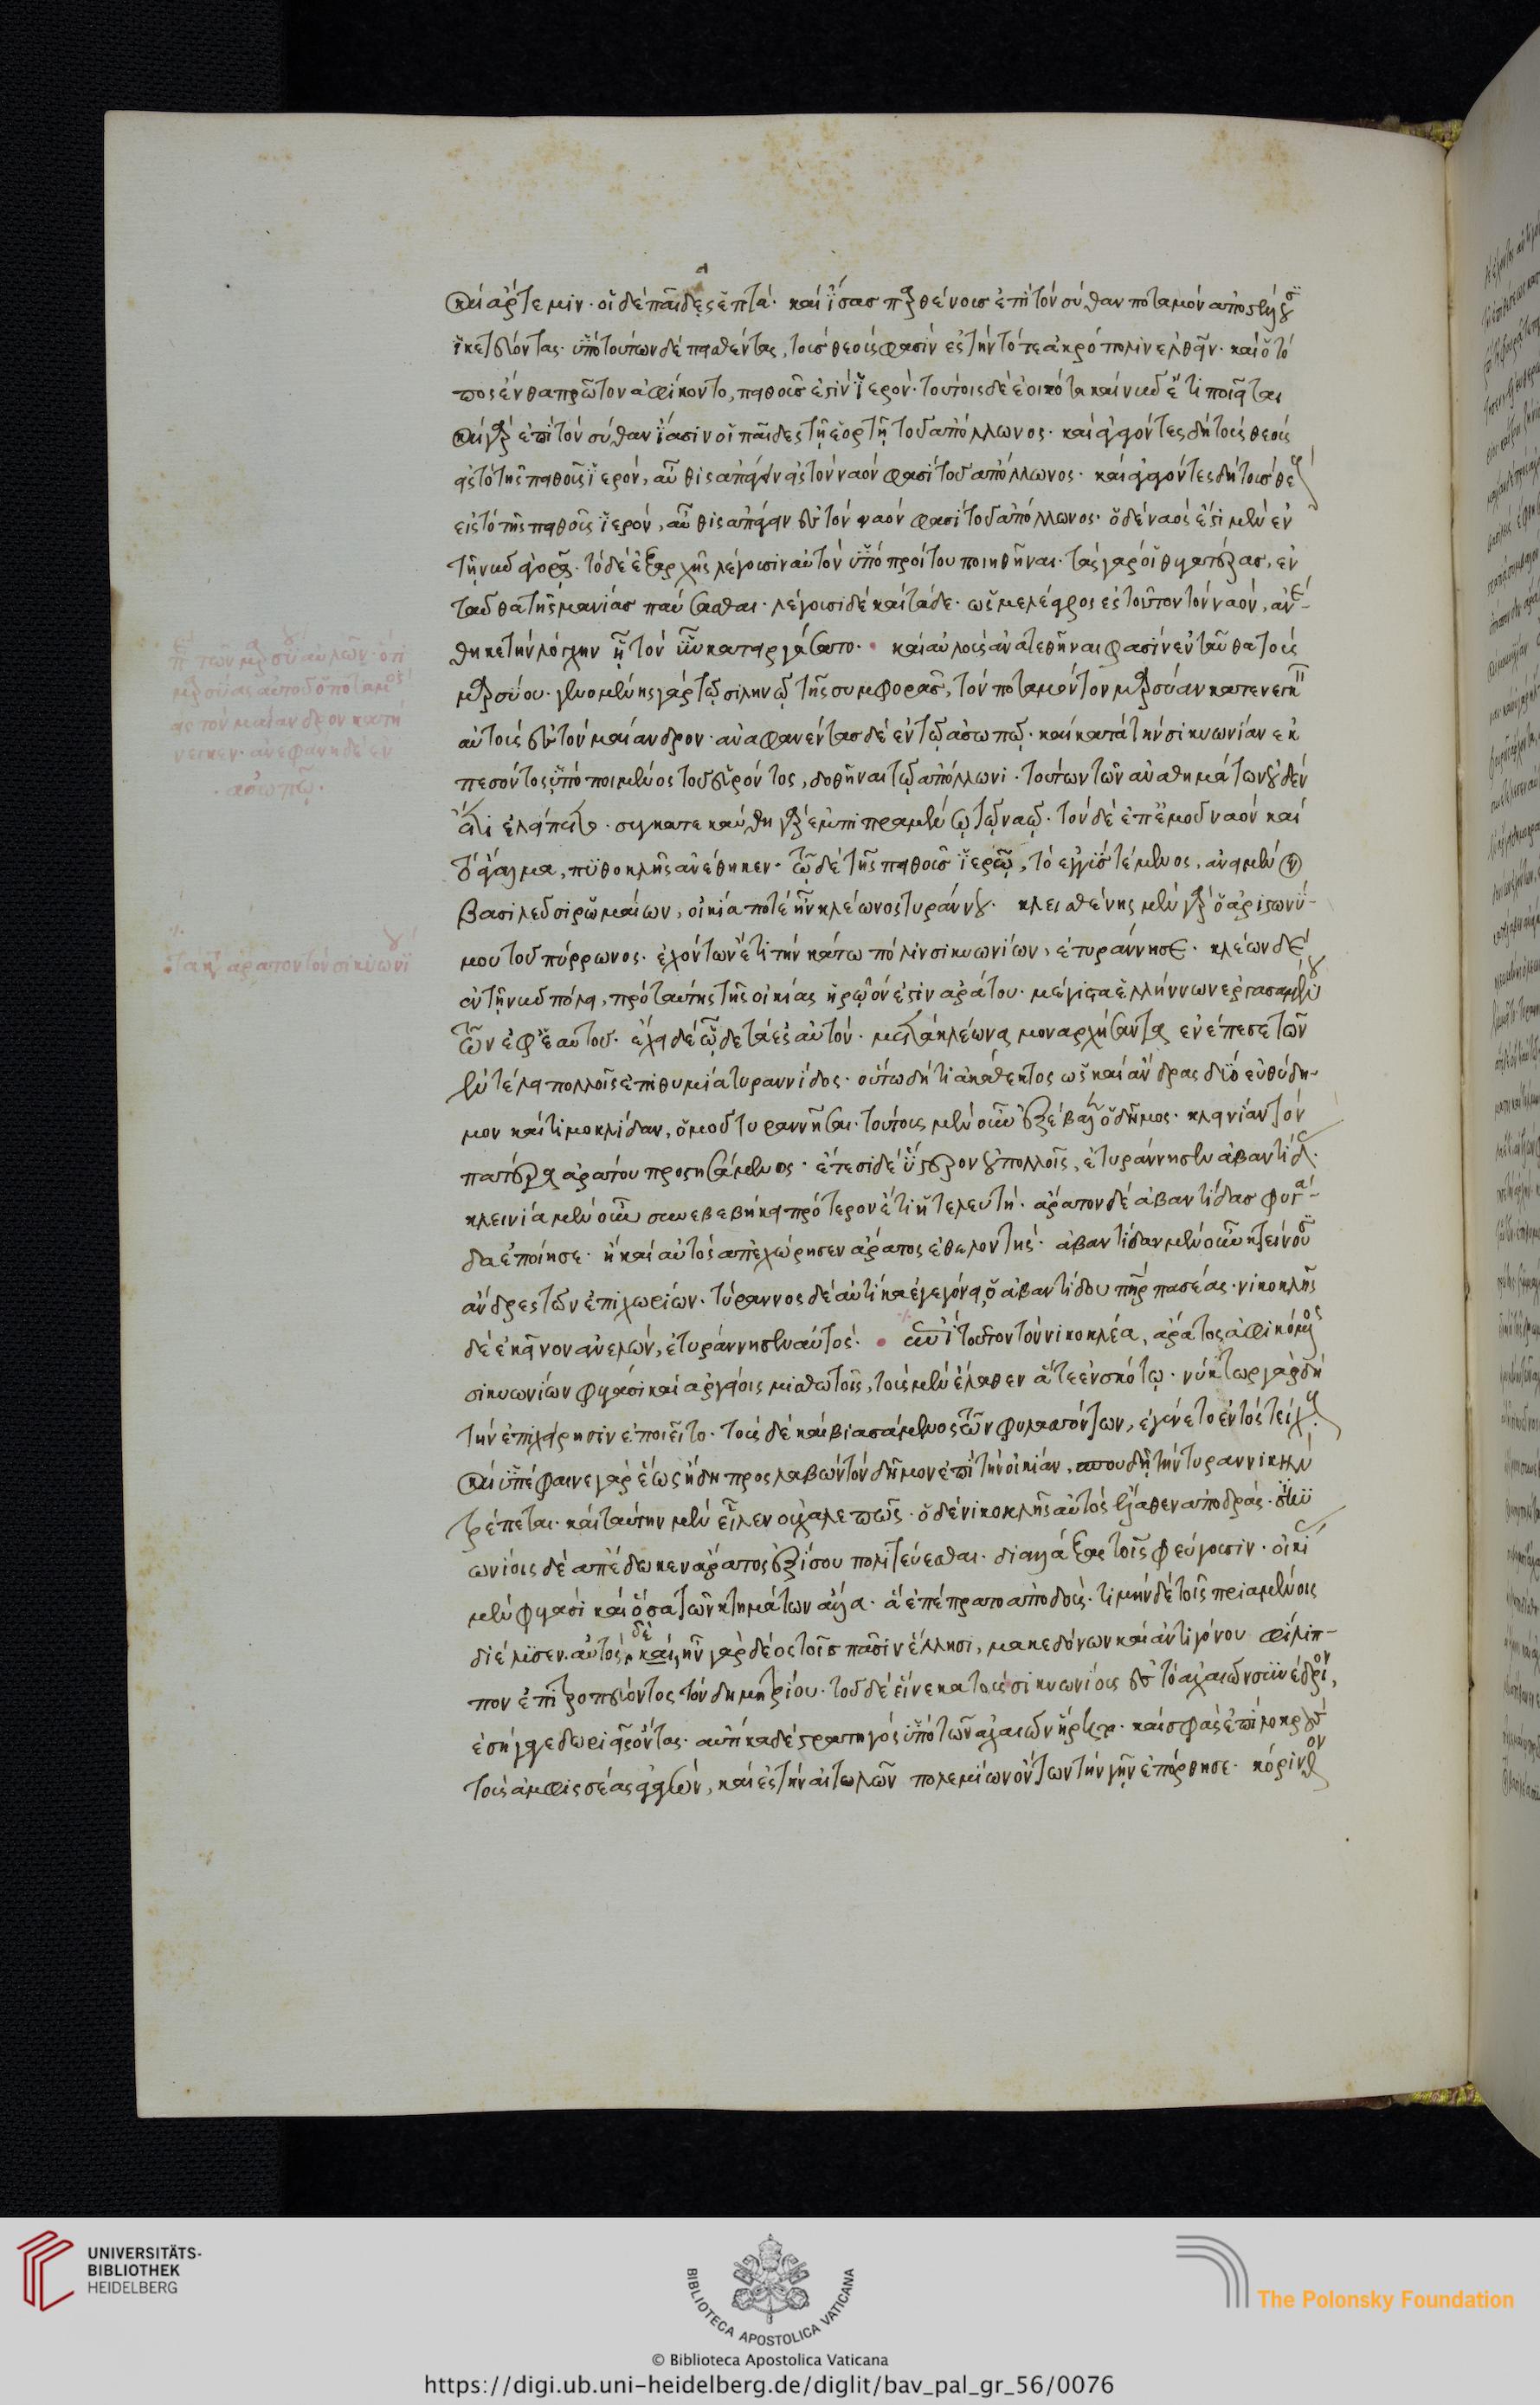 καὶ ἄρτεμιν· οἱ δὲ παῖδες ἑπτὰ· καὶ ἴσας παρθένους ἐπὶ τὸν σύθαν ποταμὸν ἀποστέλλουσιν
ἱκετεύοντας· ὑπὸ τούτων δὲ πεισθέντας, τοὺς θεοὺς φασὶν ἐς τὴν τότε ἀκρόπολιν ἐλθεῖν· καὶ ὁ τό
πος ἔνθα πρῶτον ἀφίκοντο, πειθοῦς ἐστὶν ἱερόν· τούτοις δὲ ἐοικότα καὶ νῦν ἔτι ποιεῖται
καὶ γὰρ ἐπὶ τὸν σύθαν ἴασιν οἱ παῖδες τῇ ἑορτῇ τοῦ ἀπόλλωνος· καὶ ἀγαγόντες δὴ τοὺς θεοὺς
εἰς τὸ τῆς πειθοῦς ἱερόν, αὖθις ἀπάγειν εἰς τὸν ναόν φασὶ τοῦ ἀπόλλωνος· καὶ ἀγαγόντες δὴ τοὺς θε
εἰς τὸ τῆς πειθοῦς ἱερόν, αὖθις ἀπάγειν ἐς τὸν ναόν φασὶ τοῦ ἀπόλλωνος· ὁ δὲ ναὸς ἔστι μὲν ἐν
τῇ νῦν ἀγορᾷ· τὸ δὲ ἐξαρχῆς λέγουσιν αὐτὸν ὑπὸ προίτου ποιηθῆναι· τὰς γάρ οἱ θυγατέρας, ἐν
ταῦθα τῆς μανίας παύσασθαι· λέγουσι δὲ καὶ τάδε· ὡς μελέαγρος ἐς τοῦτον τὸν ναόν, ἀνέ-
θηκε τὴν λόγχην ᾗ τὸν ὗν κατειργάσατο· καὶ αὐλοὺς ἀνατεθῆναι φασὶν ἐνταῦθα τοὺς
μαρσύου· γενομένης γὰρ τῷ σιληνῷ τῆς συμφορᾶς, τὸν ποταμὸν τὸν μαρσύαν κατενεγκεῖν
αὐτοὺς ἐς τὸν μαίανδρον· ἀναφανέντας δὲ ἐν τῷ ἀσωπῷ· καὶ κατὰ τὴν σικυωνίαν ἐκ
πεσόντος ὑπὸ ποιμένος τοῦ εὑρόντος, δοθῆναι τῷ ἀπόλλωνι· τούτων τῶν ἀναθημάτων οὐδὲν
ἔτι ἐλείπετο· συγκατεκαύθη γὰρ ἐμπιπραμένῳ τῷ ναῷ· τὸν δὲ ἐπ' ἐμοῦ ναὸν καὶ
τὸ ἄγαλμα, πυθοκλῆς ἀνέθηκεν· τῷ δὲ τῆς πειθοῦς ἱερῷ, τὸ ἐγγὺς τέμενος, ἀνειμένον
βασιλεῦσι ῥωμαίων, οἰκία ποτὲ ἦν κλέωνος τυράννου· κλεισθένης μὲν γὰρ ὁ ἀριστωνύ-
μου τοῦ πύρρωνος· ἐχόντων ἔτι τὴν κάτω πόλιν σικυωνίων, ἐτυράννησε· κλέων δὲ
ἐν τῇ νῦν πόλει, πρὸ ταύτης τῆς οἰκίας ἡρῷόν ἐστιν ἀράτου· μέγιστα ἑλλήνων ἐργασαμένου
τῶν ἐφ' ἑαυτοῦ· ἔχει δὲ ὧδε τὰ ἐς αὐτόν· μετὰ κλέωνα μοναρχήσαντα ἐνέπεσε τῶν
ἐν τέλει πολλοῖς ἐπιθυμία τυραννίδος· οὕτω δή τι ἀκάθεκτος ὡς καὶ ἄνδρας δύο εὐθύδη-
μον καὶ τιμοκλίδαν, ὁμοῦ τυραννῆσαι· τούτους μὲν οὖν ἐξέβαλεν ὁ δῆμος· κλεινίαν τὸν
πατέρα ἀράτου προστησάμενος· ἔτεσι δὲ ὕστερον οὐ πολλοῖς, ἐτυράννησεν ἀβαντίδας·
κλεινία μὲν οὖν συνεβεβήκει πρότερον ἔτι ἡ τελευτή· ἄρατον δὲ ἀβαντίδας φυγά-
δα ἐποίησε· ἢ καὶ αὐτὸς ἀπεχώρησεν ἄρατος ἐθελοντής· ἀβαντίδαν μὲν οὖν κτείνουσιν
ἄνδρες τῶν ἐπιχωρίων· τύραννος δὲ αὐτίκα ἐγεγόνει, ὁ ἀβαντίδου πατὴρ πασέας· νικοκλῆς
δὲ ἐκεῖνον ἀνελών, ἐτυράννησεν αὐτός· ἐπὶ τοῦτον τὸν νικοκλέα, ἄρατος ἀφικόμενος
σικυωνίων φυγάσι καὶ ἀργείοις μισθωτοῖς, τοὺς μὲν ἔλαθεν ἅτε ἐν σκότῳ· νύκτωρ γὰρ δὴ
τὴν ἐπιχείρησιν ἐποιεῖτο· τοὺς δὲ καὶ βιασάμενος τῶν φυλασσόντων, ἐγένετο ἐντὸς τείχους
καὶ ὑπέφαινε γὰρ ἕως ἤδη προσλαβὼν τὸν δῆμον ἐπὶ τὴν οἰκίαν, σπουδῇ τὴν τυραννικὴν
τρέπεται· καὶ ταύτην μὲν εἷλεν οὐ χαλεπῶς· ὁ δὲ νικοκλῆς αὐτὸς ἔλαθεν ἀποδράς· σικυ
ωνίοις δὲ ἀπέδωκεν ἄρατος ἐξίσου πολιτεύεσθαι· διαλλάξας τοῖς φεύγουσιν· οἰκί
μὲν φυγάσι καὶ ὅσα τῶν κτημάτων ἄλλα· ἃ ἐπέπρατο ἀποδούς· τιμὴν δὲ τοῖς πριαμένοις
διέλυσεν αὐτός· δὲ καὶ, ἦν γὰρ δέος τοῖς πᾶσιν ἕλλησι, μακεδόνων καὶ ἀντιγόνου φίλιπ-
πον ἐπιτροπεύοντος τὸν δημητρίου· τοῦ δὲ εἵνεκα τοὺς σικυωνίους ἐς τὸ ἀχαιῶν συνέδριον,
ἐσήγαγε δωριεῖς ὄντας· αὐτίκα δὲ στρατηγὸς ὑπὸ τῶν ἀχαιῶν ᾕρητο· καὶ σφᾶς ἐπὶ λοκροὺς
τοὺς ἀμφισσέας ἀγαγών, καὶ ἐς τὴν αἰτωλῶν πολεμίων ὄντων τὴν γῆν ἐπόρθησε· κόρινθον
περὶ τῶν μαρσύου αὐλῶν· ὅτι
μαρσύας αὐτοὺς ὁ ποταμὸς
ἐς τὸν μαίανδρον κατή
νεγκεν· ἀνεφάνη δὲ ἐν
ἀσωπῷ·
ἄρατον τὸν σικυώνι
UNIVERSITÄTS-
BIBLIOTHEK
HEIDELBERG
BIBLIOTECA APOSTOLICA VATICANA
The Polonsky Foundation
© Biblioteca Apostolica Vaticana
https://digi.ub.uni-heidelberg.de/diglit/bav_pal_gr_56/0076